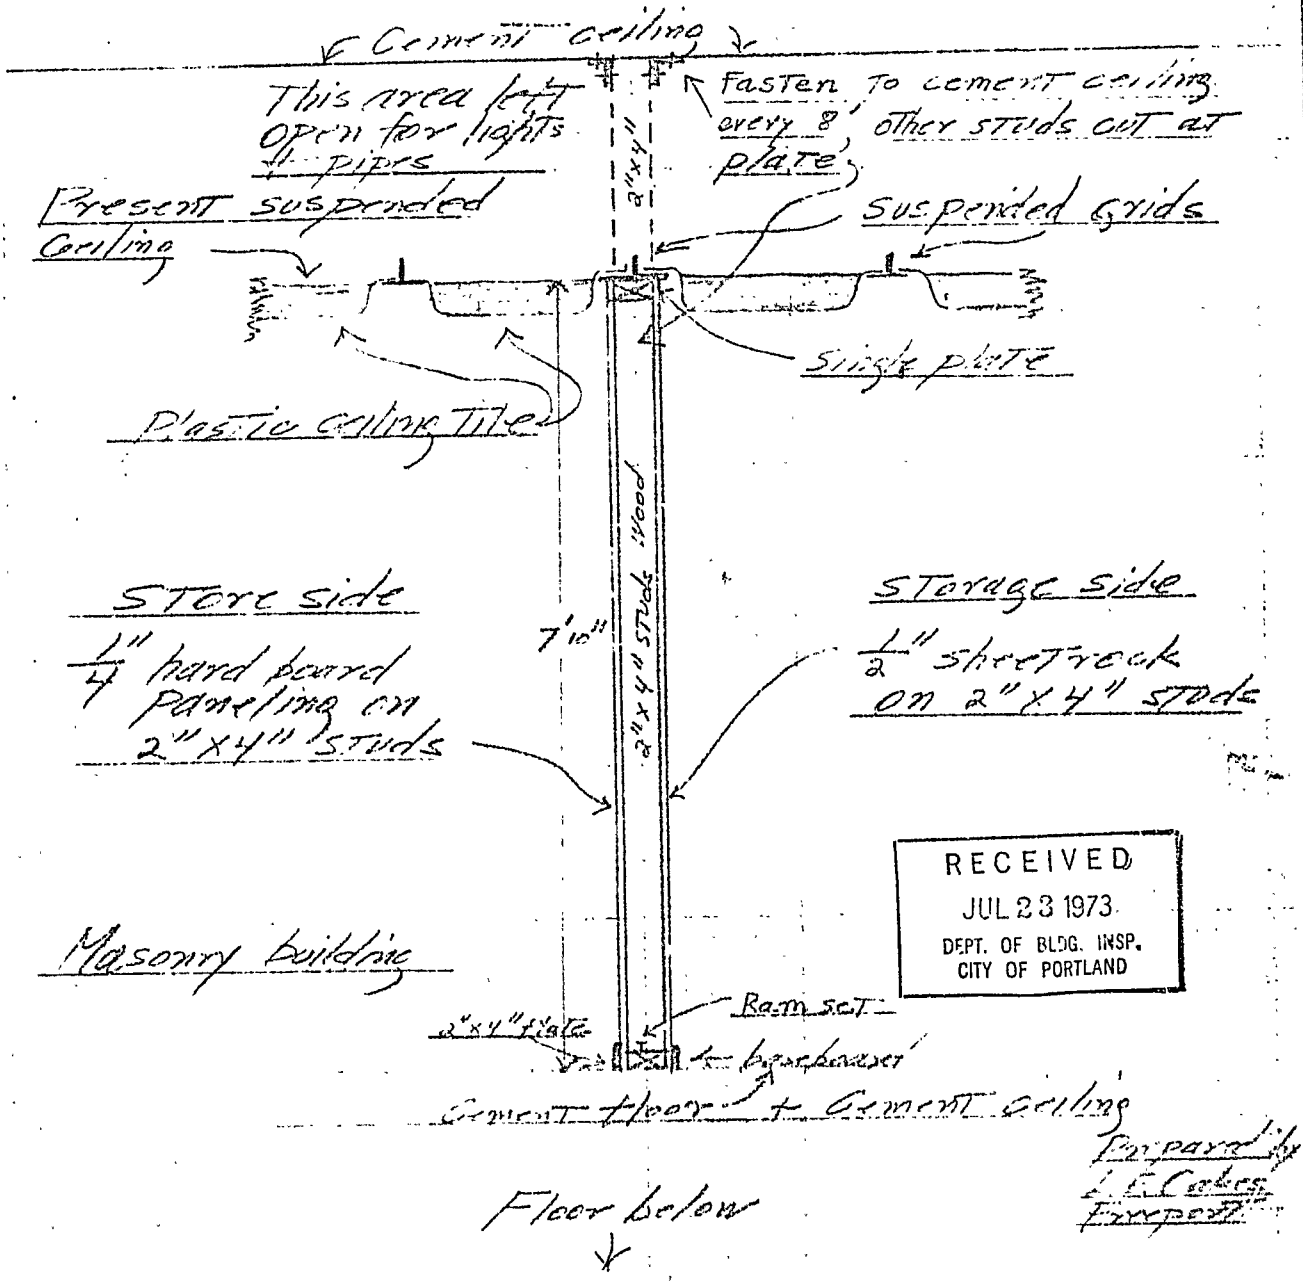 Cement ceiling
This area left
open for lights
+ pipes
2" x 4"
Fasten to cement ceiling
every 8', other studs cut at
plate
Present suspended
Ceiling
Suspended Grids
Single plate
Plastic ceiling Tile
Store side
1/4" hard board
paneling on
2" x 4" studs
7'10"
2" x 4" studs Wood
Storage side
1/2" sheetrock
on 2" x 4" studs
RECEIVED
JUL 23 1973
DEPT. OF BLDG. INSP.
CITY OF PORTLAND
Masonry building
Ram set
2" x 4" Plate
baseboard
Cement floor + Cement Ceiling
Prepared by
Freeport
Floor below